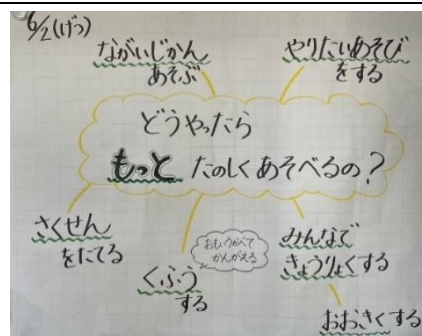 6/2(げつ)
ながいじかん
あそぶ
やりたいあそび
をする
どうやったら
もっと たのしくあそべるの?
さくせん
をたてる
くふう
する
おもいうかべて
かんがえる
みんなで
きょうりょくする
おおきくする